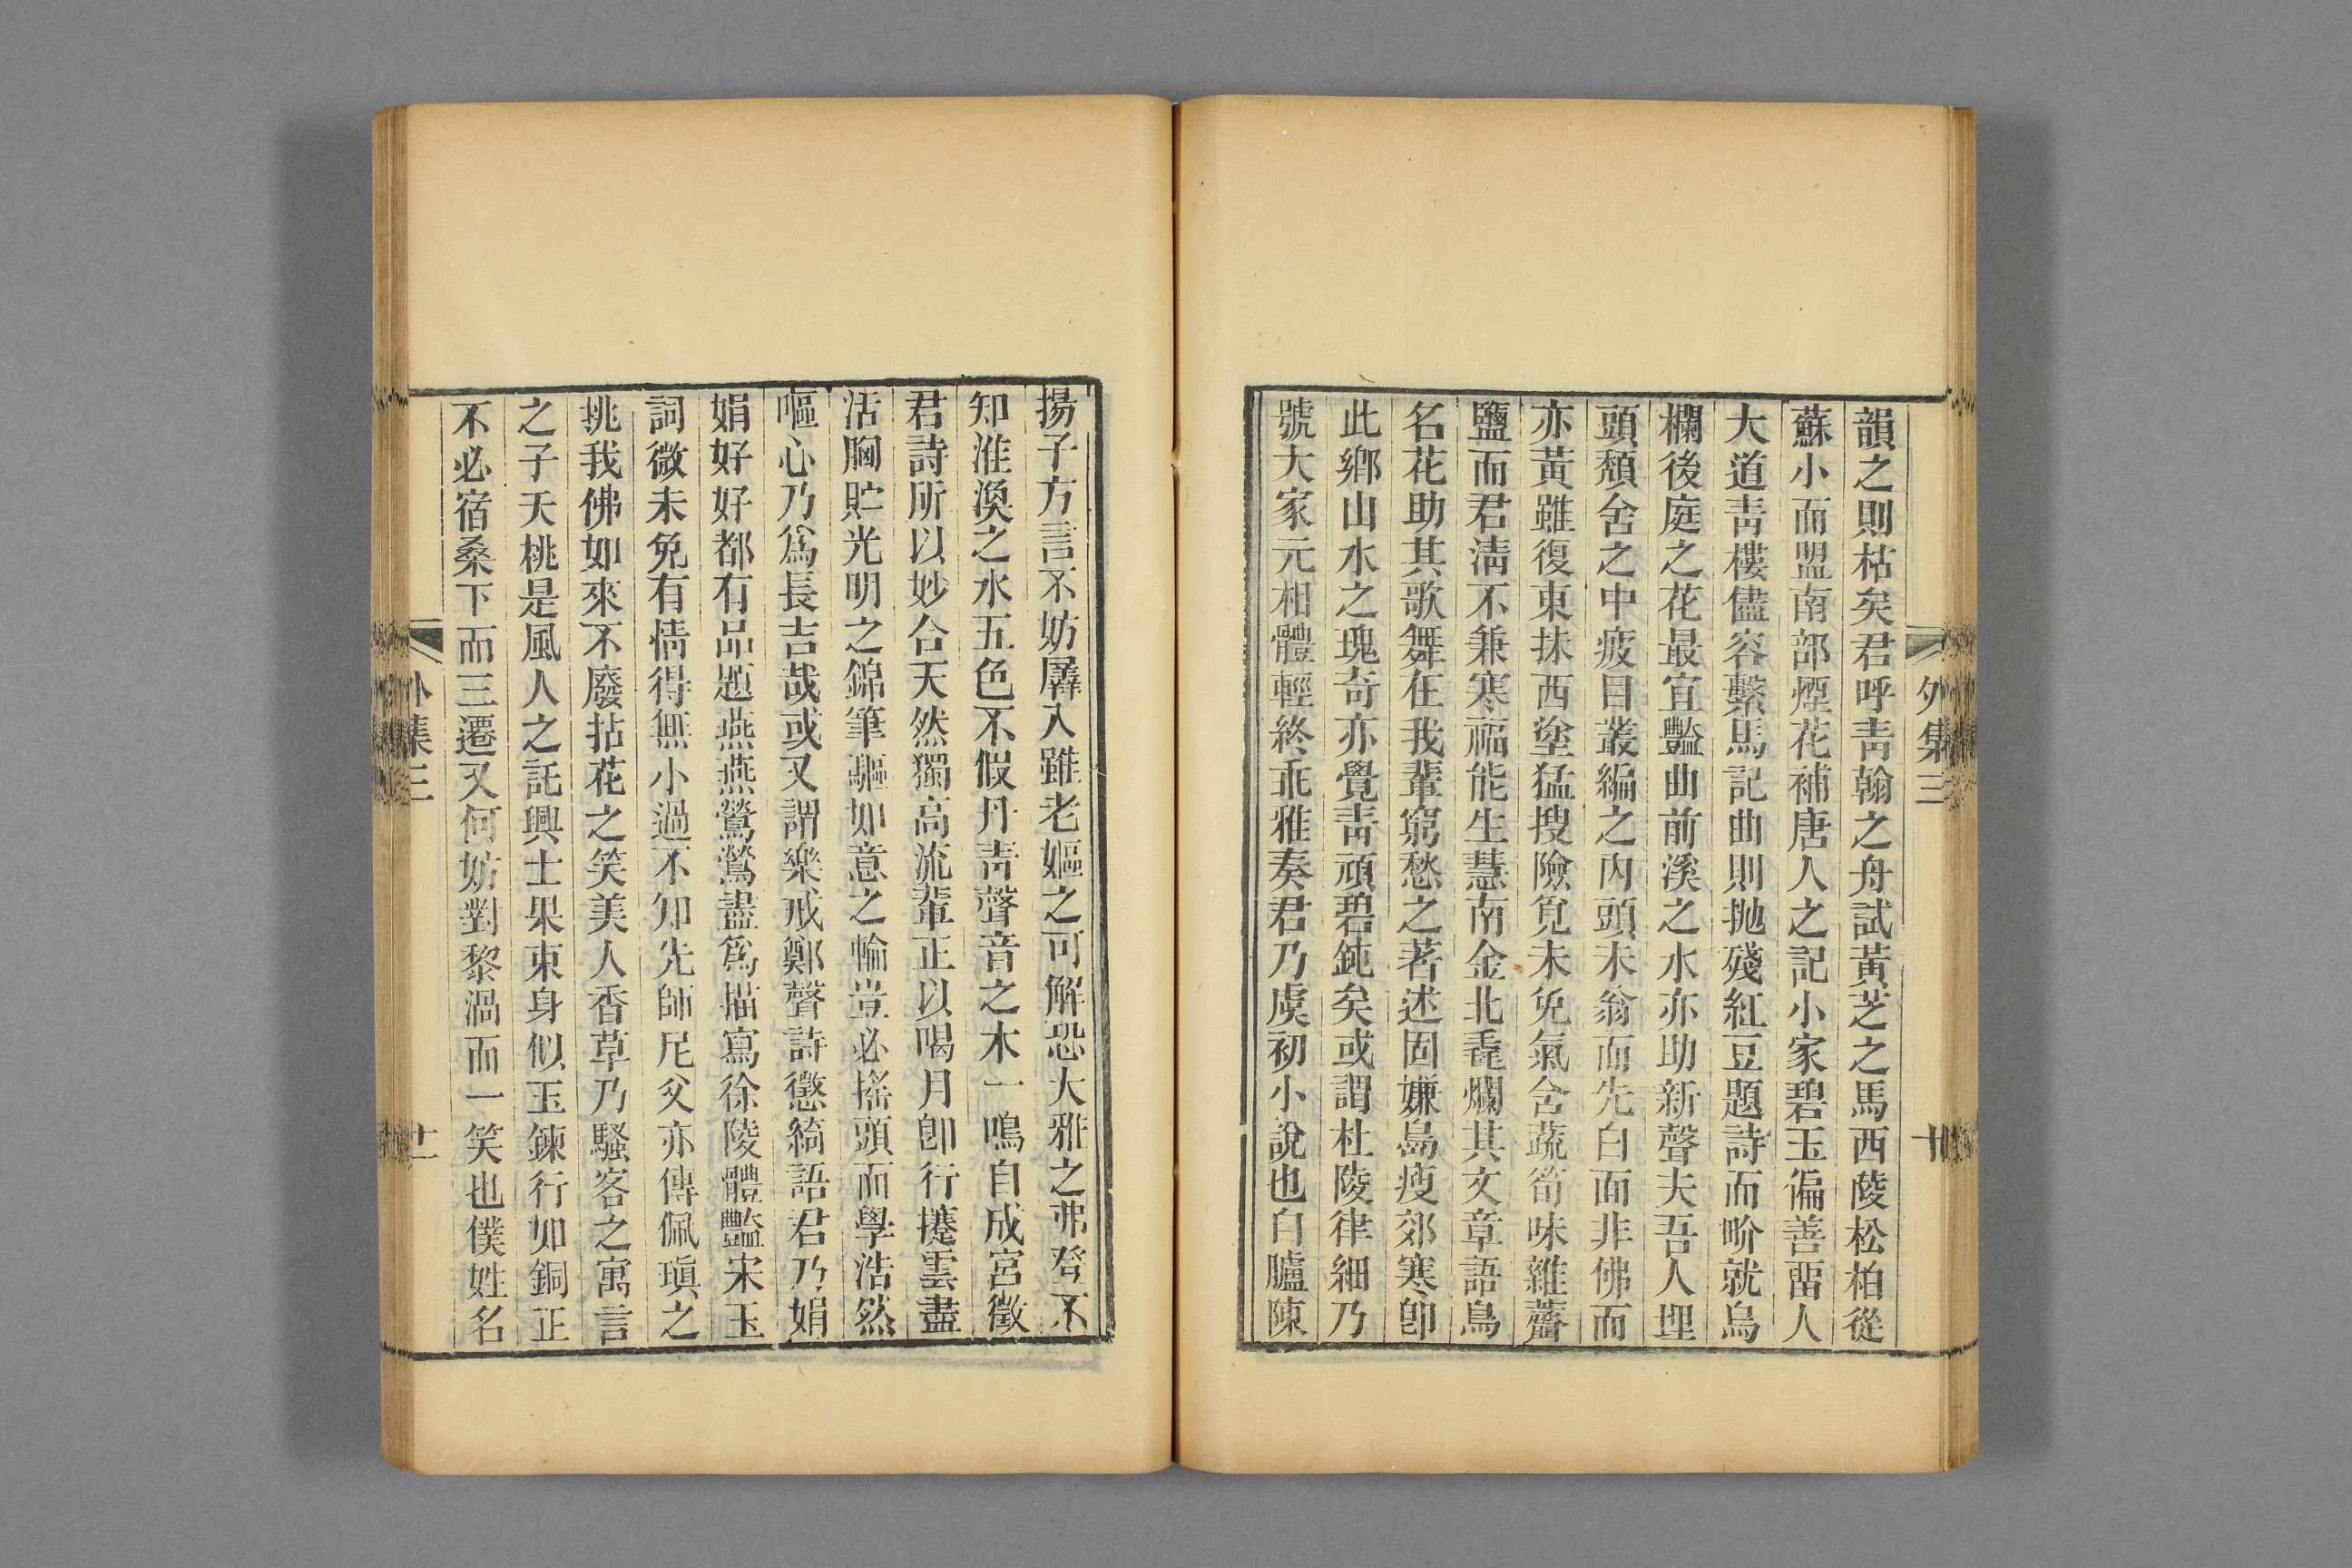 韻之則枯矣君呼靑翰之舟試黃芝之馬西陵松柏從
蘇小而盟南部煙花補唐人之記小家碧玉徧善畱人
大道靑樓儘容繫馬記曲則抛殘紅豆題詩而畍就烏
欄後庭之花最宜豔曲前溪之水亦助新聲夫吾人埋
頭頹舍之中疲目叢編之内頭未翁而先白面非佛而
亦黃雖復東抹西塗猛搜險覓未免氣含蔬筍味雜虀
鹽而君淸不兼寒福能生慧南金北毳爛其文章語鳥
名花助其歌舞在我輩窮愁之著述固嫌島瘦郊寒卽
此鄉山水之瑰奇亦覺靑頑碧鈍矣或謂杜陵律細乃
號大家元相體輕終乖雅奏君乃虞初小說也白臚陳
外集三
十
揚子方言不妨羼入雖老嫗之可解恐大雅之弗登不
知淮渙之水五色不假丹靑聲音之木一鳴自成宮徵
君詩所以妙合天然獨高流輩正以喝月卽行攓雲盡
活胸貯光明之錦筆驅如意之輪豈必搖頭而學浩然
嘔心乃爲長吉哉或又謂樂戒鄭聲詩懲綺語君乃娟
娟好好都有品題燕燕鶯鶯盡爲描寫徐陵體豔宋玉
詞微未免有情得無小過不知先師尼父亦傳佩瑱之
挑我佛如來不廢拈花之笑美人香草乃騷客之寓言
之子夭桃是風人之託興士果束身似玉鍊行如銅正
不必宿桑下而三遷又何妨對黎渦而一笑也僕姓名
外集三
十一